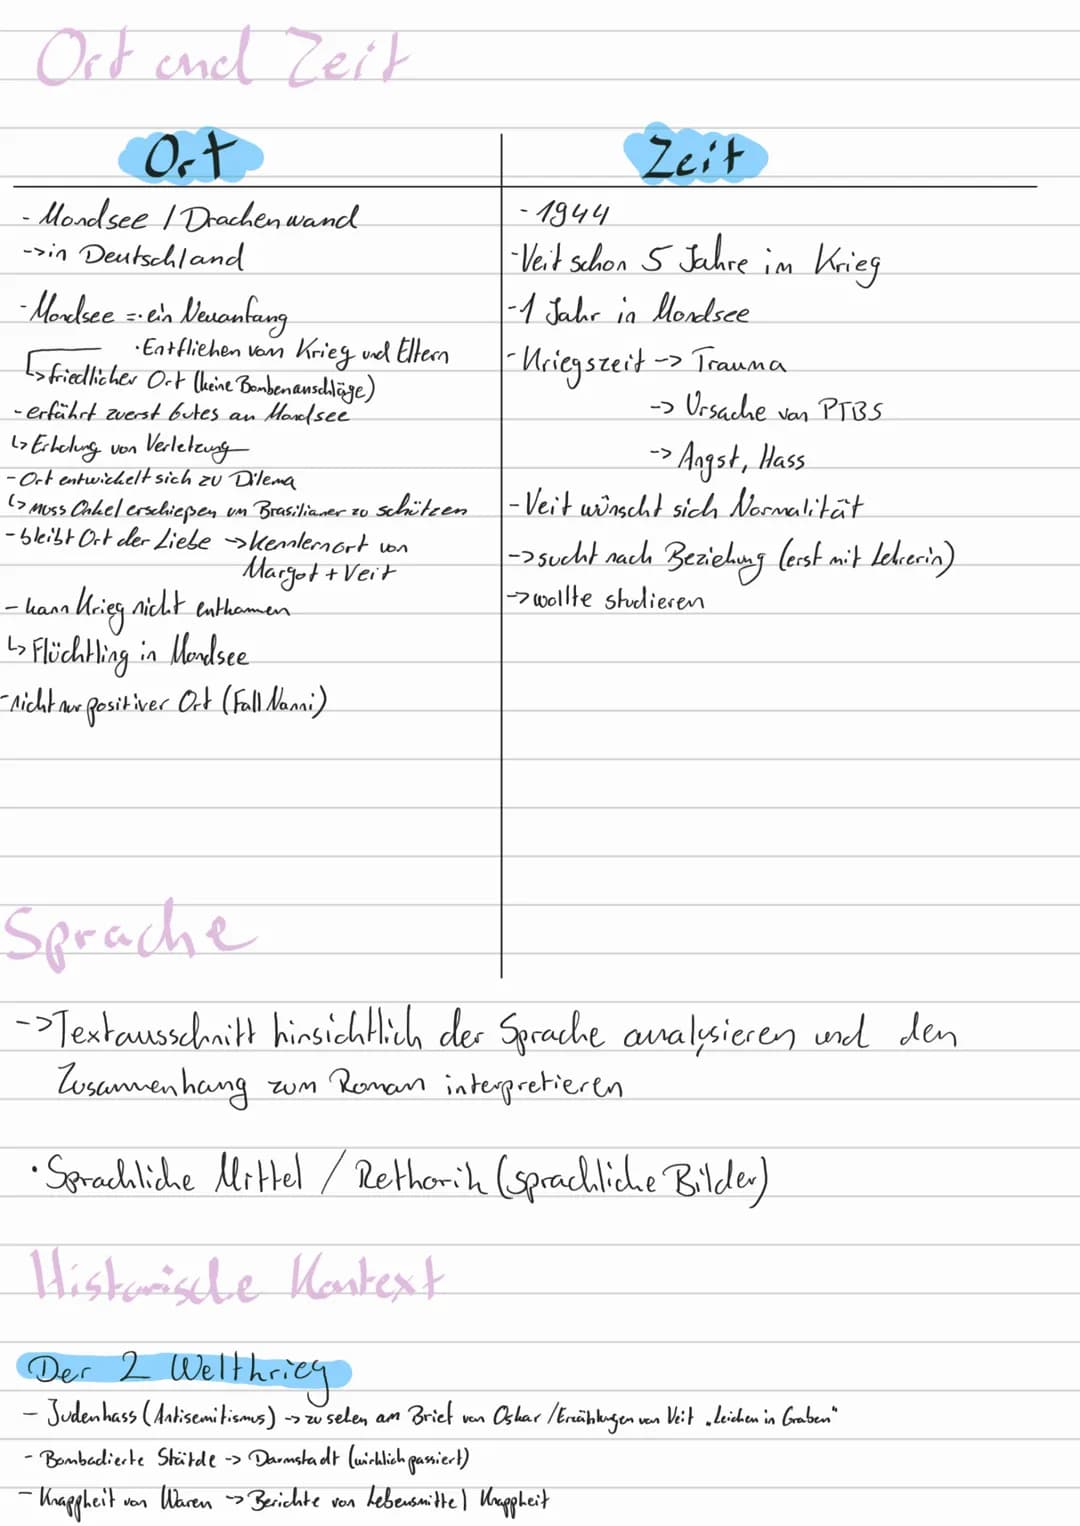 Ort und Zeit
Ort
- Mondsee / Drachenwand
-> in Deutschland
- Mondsee =· ein Neuanfang
· Entfliehen vom Krieg und Eltern
-> friedlicher Ort (keine Bombenanschläge)
- erfährt zuerst Gutes an Mondsee
↳ Erholung von Verletzung
- Ort entwickelt sich zu Dilema
↳ muss Onkel erschießen um Brasilianer zu schützen
- bleibt Ort der Liebe -> Kennlernort von
Margot + Veit
- kann Krieg nicht entkommen
↳ Flüchtling in Mondsee
- nicht nur positiver Ort (Fall Nanni)
Zeit
- 1944
- Veit schon 5 Jahre im Krieg
- 1 Jahr in Mondsee
- Kriegszeit -> Trauma
-> Ursache von PTBS
-> Angst, Hass
- Veit wünscht sich Normalität
-> sucht nach Beziehung (erst mit Lehrerin)
-> wollte studieren
Sprache
-> Textausschnitt hinsichtlich der Sprache analysieren und den
Zusammenhang zum Roman interpretieren
· Sprachliche Mittel / Rethorik (sprachliche Bilder)
Historische Kontext
Der 2 Weltkrieg
- Judenhass (Antisemitismus) -> zu sehen am Brief von Oskar / Erzählungen von Veit „Leichen in Graben"
- Bombadierte Städte -> Darmstadt (wirklich passiert)
- Knappheit von Waren -> Berichte von Lebensmittel Knappheit